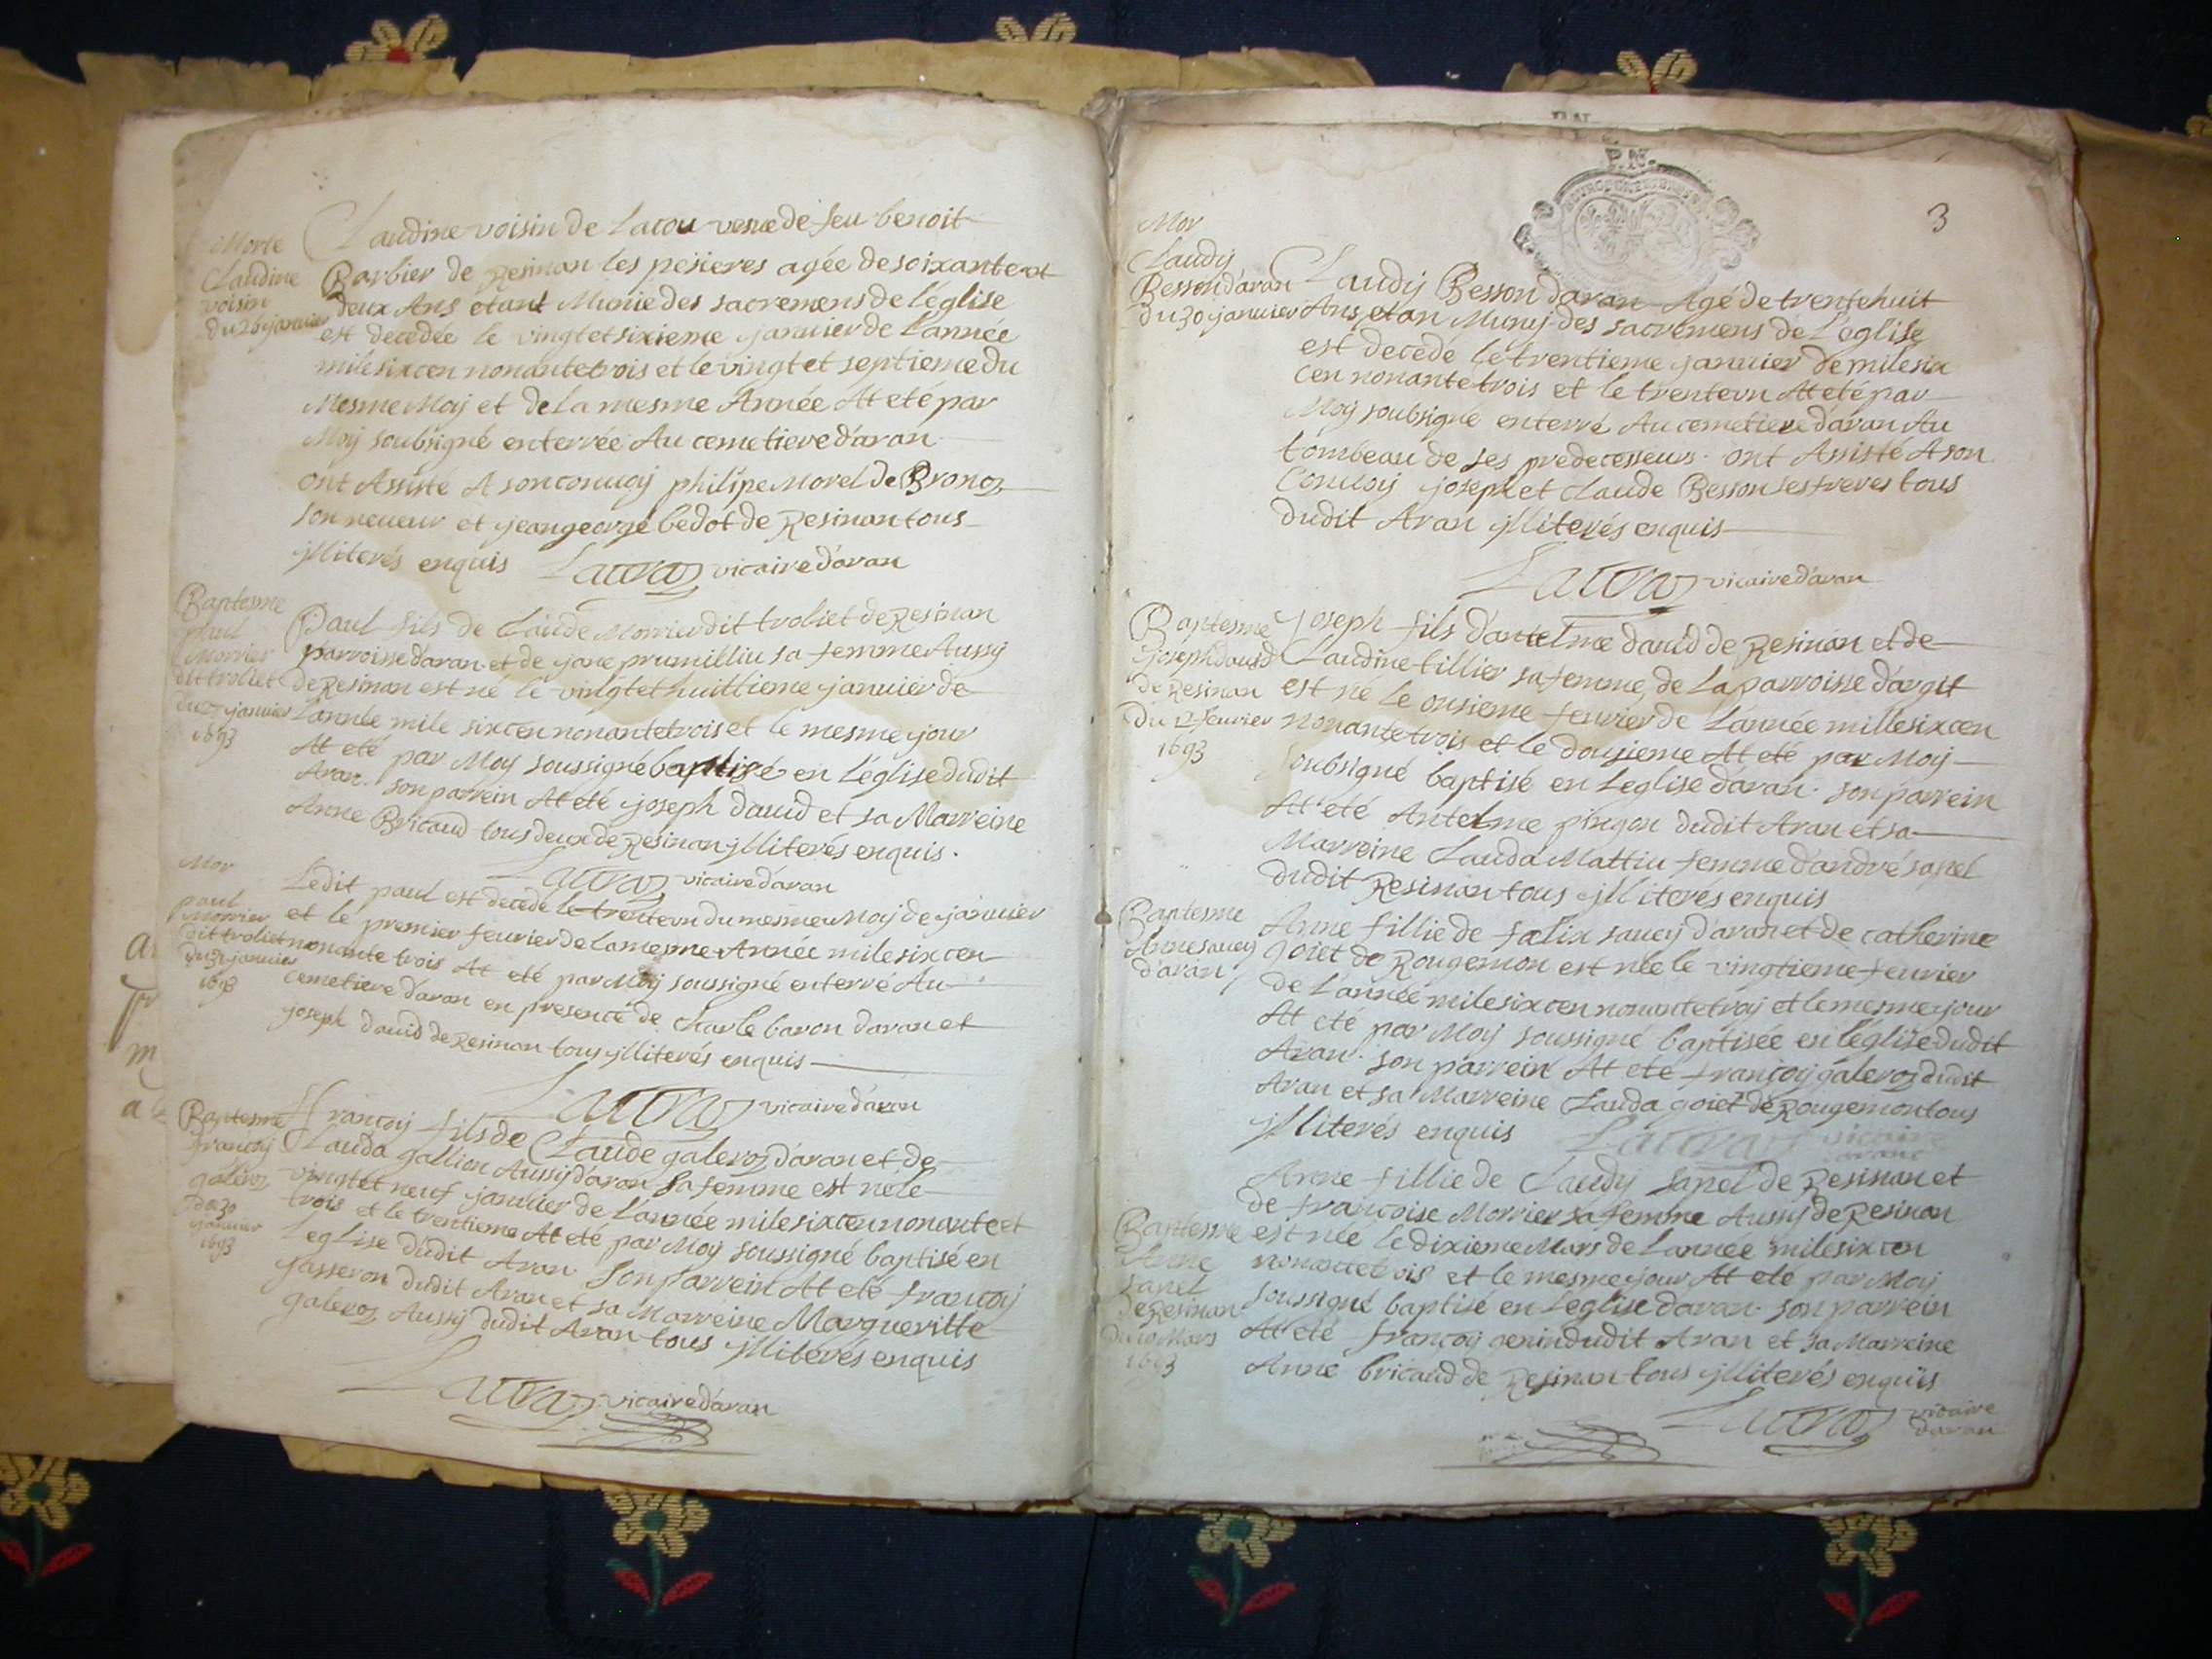 Morte
Claudine
voisin
du 26 janvier
Claudine voisin de Lacou veue de feu benoit
Barbier de Resinan les pesieres agée de soixante et
deux Ans etant Munie des sacremens de l'eglise
est decedée le vingt et sixieme janvier de L'année
mile six cen nonante trois et le vingt et septieme du
Mesme Moij et de la mesme Année At eté par
Moij soubsigné enterrée Au cemetiere d'aran
ont Assisté A son convoij philipe Morel de Bronoz
son neveur et jean george bedot de Resinan tous
jlliterés enquis Lacraz vicaire d'aran
Baptesme
paul
Morrier
dit troliet
du 27 janvier
1693
Paul fils de Claude Morrier dit troliet de Resinan
parroisse daran et de jane prumilliu sa femme Aussij
de Resinan est né le vingt et huittieme janvier de
L'année mile six cen nonante trois et le mesme jour
At eté par Moij soussigné baptisé en L'église dudit
Aran. son parrein At eté joseph david et sa Marreine
Anne Bricaud tous deux de Resinan jlliterés enquis.
Lacraz vicaire d'aran
Mor
paul
Morrier
dit troliet
du 31 janvier
Ledit paul est decedé le trenteun du mesme Moij de janvier
et le premier fevrier de la mesme Année mile six cen
nonante trois At eté par Moij soussigné enterré Au
cemetiere d'aran en presence de Charle baron daran et
joseph david de Resinan tous jlliterés enquis
Lacraz vicaire d'aran
Baptesme
françoij
galeroz
du 30
janvier
1693
françoij fils de Claude galeroz d'aran et de
Clauda gallion Aussij d'aran sa femme est né le
vingt et neuf janvier de L'année mile six cen nonante et
trois et le trentieme At eté par Moij soussigné baptisé en
L'eglise dudit Aran. Son parrein At eté françoij
jasseron dudit Aran et sa Marreine Margueritte
galeroz Aussij dudit Aran tous jlliterés enquis
Lacraz vicaire d'aran
3
Mor
Claudij
Besson d'aran
du 30 janvier
Claudij Besson daran Agé de trente huit
Ans, etan Munij des sacremens de L'eglise
est decedé le trentieme janvier de mile six
cen nonante trois et le trenteun At eté par
Moij soubsigné enterré Au cemetiere d'aran Au
tombeau de ses predecesseurs. ont Assisté A son
Convoij joseph et Claude Besson ses freres tous
dudit Aran jlliterés enquis
Lacraz vicaire d'aran
Baptesme
joseph david
de Resinan
du 12 fevrier
1693
Joseph fils d'antelme david de Resinan et de
Claudine tillier sa femme, de La parroisse d'argit
est né le onsieme fevrier de L'année mille six cen
nonante trois et le dousieme At eté par Moij
soubsigné baptisé en Leglise daran. son parrein
At eté Antelme pingon dudit Aran et sa
Marreine Clauda Mattiu femme d'andré sapel
dudit Resinan tous jlliterés enquis
Baptesme
Anne saueij
d'aran
Anne fillie de fælix saueij d'aran et de catherine
goiet de Rougemon est née le vingtieme fevrier
de L'année mile six cen nonante troij et le mesme jour
At eté par Moij soussigné baptisée en l'église dudit
Aran. son parrein At eté françoij galeroz dudit
Aran et sa Marreine Clauda goiet de Rougemon tous
jlliterés enquis Lacraz vicaire
Baptesme
Anne
sapel
de Resinan
du 10 Mars
1693
Anne fillie de Claudij sapel de Resinan et
de françoise Morrier sa femme Aussij de Resinan
est née le dixieme Mars de L'année mile six cen
nonante trois et le mesme jour At eté par Moij
soussigné baptisé en L'eglise daran. son parrein
At eté françoij genin dudit Aran et sa Marreine
Anne bricaud de Resinan tous jlliterés enquis
Lacraz vicaire
daran